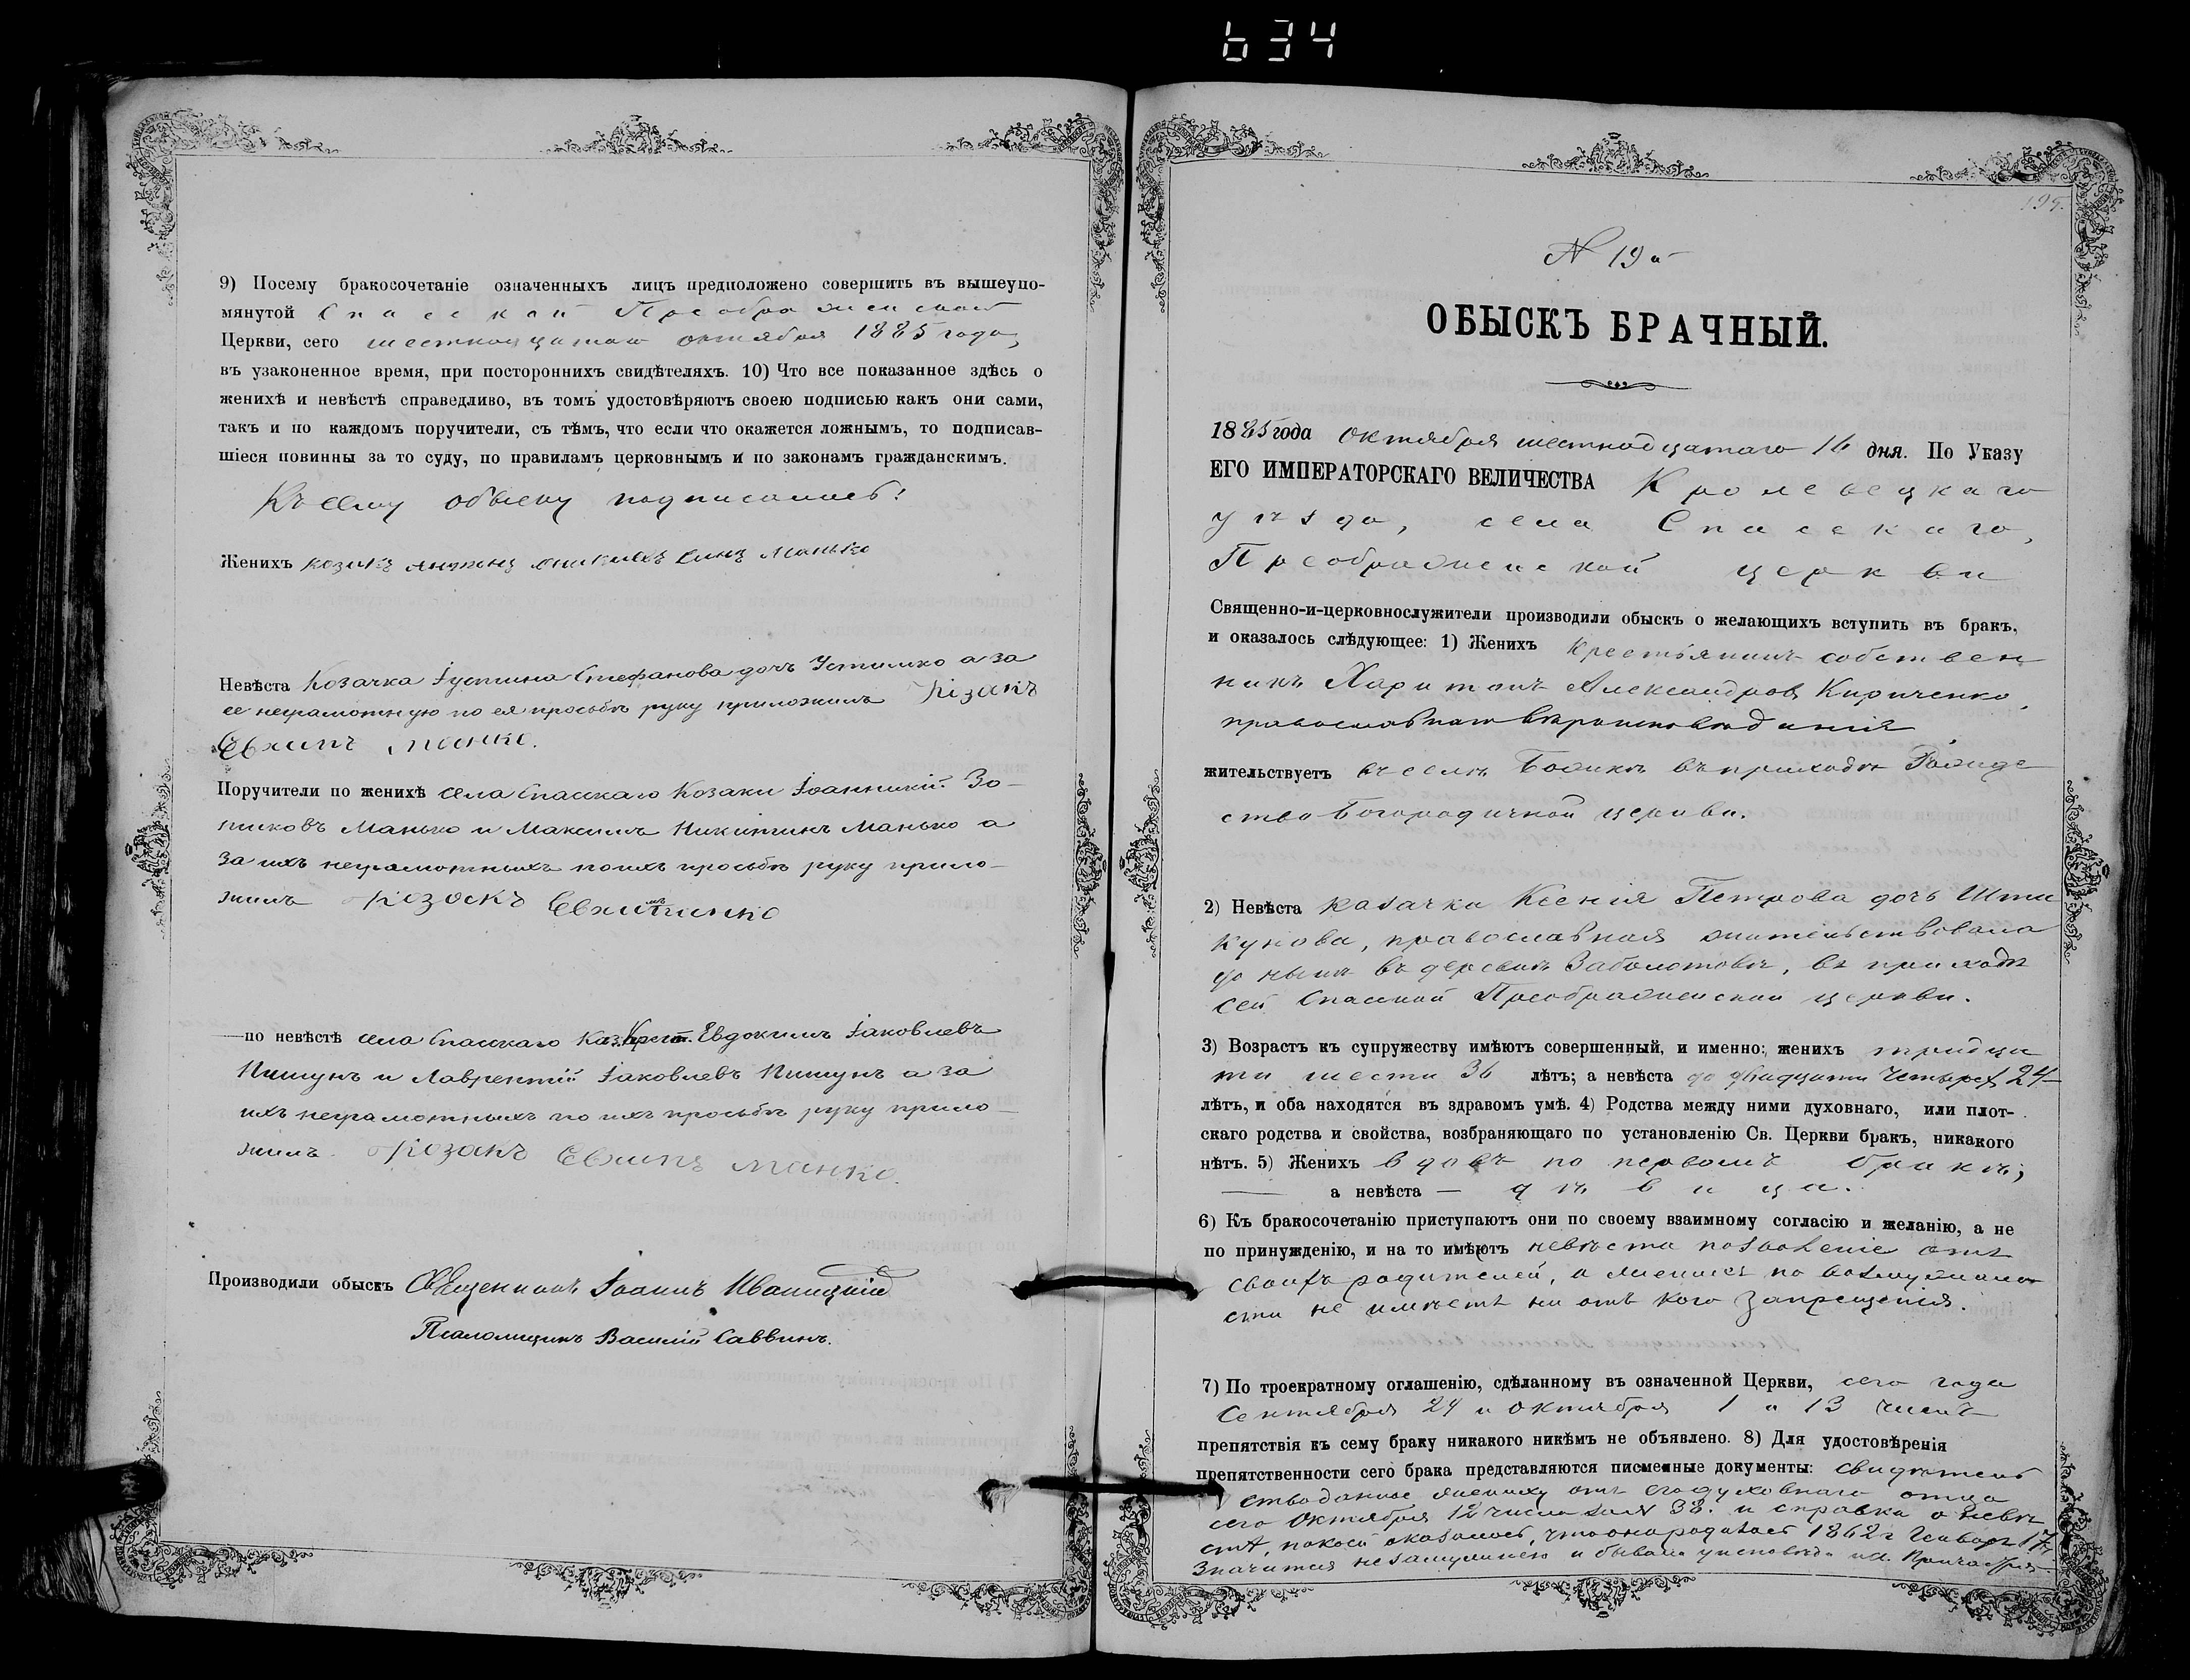 634
9) Посему бракосочетаніе означенныхъ лицъ предположено совершить въ вышеупо-
мянутой Спасской Преображенской
Церкви, сего шестнадцатаго октября 1885 года,
въ узаконенное время, при постороннихъ свидѣтеляхъ. 10) Что все показанное здѣсь о
женихѣ и невѣстѣ справедливо, въ томъ удостовѣряютъ своею подписью какъ они сами,
такъ и по каждомъ поручители, съ тѣмъ, что если что окажется ложнымъ, то подписав-
шіеся повинны за то суду, по правиламъ церковнымъ и по законамъ гражданскимъ.
Къ сему обыску подписались:
Женихъ козакъ Манько
Невѣста Козачка Іустина Стефанова дочь Устимко а за
ее неграмотную по ея просьбѣ руку приложилъ Козакъ
Манко.
Поручители по женихѣ села Спасскаго Козаки Іоанникій Зо-
тиковъ Манько и Максимъ Никитинъ Манько а
за ихъ неграмотныхъ по ихъ просьбѣ руку прило-
жилъ Козакъ
по невѣстѣ села Спасскаго Каз. Крест. Евдокимъ Іаковлевъ
Пишунъ и Лаврентій Іаковлевъ Пишунъ а за
ихъ неграмотныхъ по ихъ просьбѣ руку прило-
жилъ Козакъ Манко.
Производили обыскъ Священникъ Іоаннъ Иваницкій
Псаломщикъ Василій Саввинъ.
199.
N 19й
ОБЫСКЪ БРАЧНЫЙ.
1885 года Октября шестнадцатаго 16 дня. По Указу
ЕГО ИМПЕРАТОРСКАГО ВЕЛИЧЕСТВА Кролевецкаго
уѣзда, села Спасскаго,
Преображенской церкви
Священно-и-церковнослужители производили обыскъ о желающихъ вступить въ бракъ,
и оказалось слѣдующее: 1) Женихъ Крестьянинъ собствен
никъ Харитонъ Александровъ Кириченко,
православнаго вѣроисповѣданія
жительствуетъ въ селѣ въ приходѣ Рожде
ство Богородичной церкви.
2) Невѣста казачка Ксенія Петрова дочь Шти
кунова, православная жительствовала
до нынѣ въ деревнѣ Заболотовѣ, въ приходѣ
сей Спасской Преображенской церкви.
3) Возрастъ къ супружеству имѣютъ совершенный, и именно: женихъ тридца
ти шести 36 лѣтъ; а невѣста до двадцати четырех 24
лѣтъ, и оба находятся въ здравомъ умѣ. 4) Родства между ними духовнаго, или плот-
скаго родства и свойства, возбраняющаго по установленію Св. Церкви бракъ, никакого
нѣтъ. 5) Женихъ вдовъ по первомъ бракѣ;
а невѣста — дѣвица.
6) Къ бракосочетанію приступаютъ они по своему взаимному согласію и желанію, а не
по принужденію, и на то имѣютъ невѣста позволеніе отъ
своихъ родителей, а женихъ по возмужало
сти не имѣетъ ни отъ кого запрещенія.
7) По троекратному оглашенію, сдѣланному въ означенной Церкви, сего года
Сентября 29 и Октября 1 и 13 числъ
препятствія къ сему браку никакого никѣмъ не объявлено. 8) Для удостовѣренія
препятственности сего брака представляются писменные документы: свидѣтель
ство данное жениху отъ его духовнаго отца
сего Октября 12 числа за N 38. и справка о невѣ
стѣ, по коей оказалось, что она родилась 1862 г. Генваря 17,
значится незамужнею и бывала у исповѣди и св. Причастія